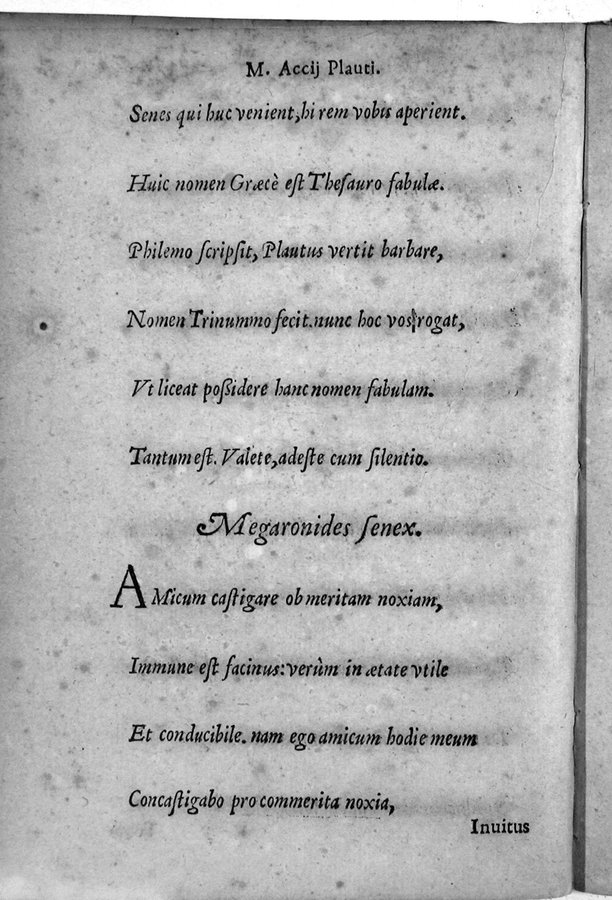 M. Accij Plauti.
Senes qui huc venient, hi rem vobis aperient.
Huic nomen Græcè eſt Theſauro fabulæ.
Philemo ſcripſit, Plautus vertit barbare,
Nomen Trinummo fecit. nunc hoc vos rogat,
Vt liceat poßidere hanc nomen fabulam.
Tantum eſt. Valete, adeſte cum ſilentio.
Megaronides ſenex.
AMicum caſtigare ob meritam noxiam,
Immune eſt facinus: verùm in ætate vtile
Et conducibile. nam ego amicum hodie meum
Concaſtigabo pro commerita noxia,
Inuitus